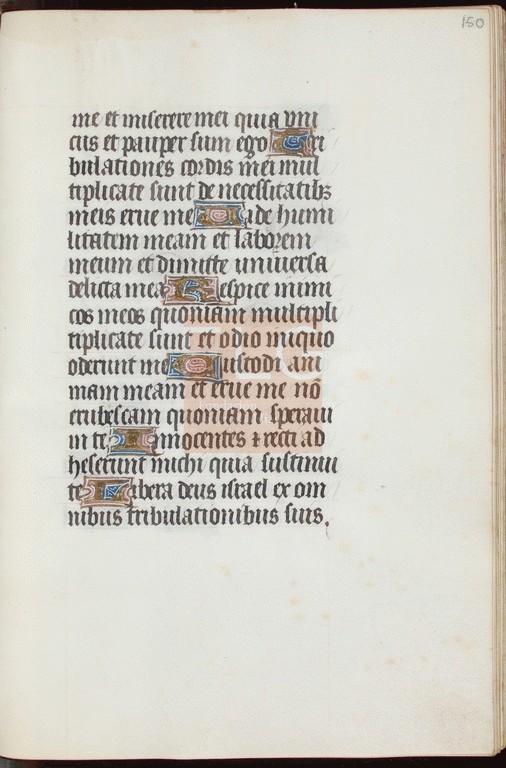 150
me et miserere mei quia vni
cus et pauper sum ego Tri
bulationes cordis mei mul
tiplicate sunt de necessitatibz
meis erue me Uide humi
litatem meam et laborem
meum et dimitte uniuersa
delicta mea Respice inimi
cos meos quoniam multipli
tiplicate sunt et odio iniquo
oderunt me Custodi ani
mam meam et erue me nō
erubescam quoniam speraui
in te Innocentes ⁊ recti ad
heserunt michi quia sustinui
te Libera deus israel ex om
nibus tribulationibus suis.